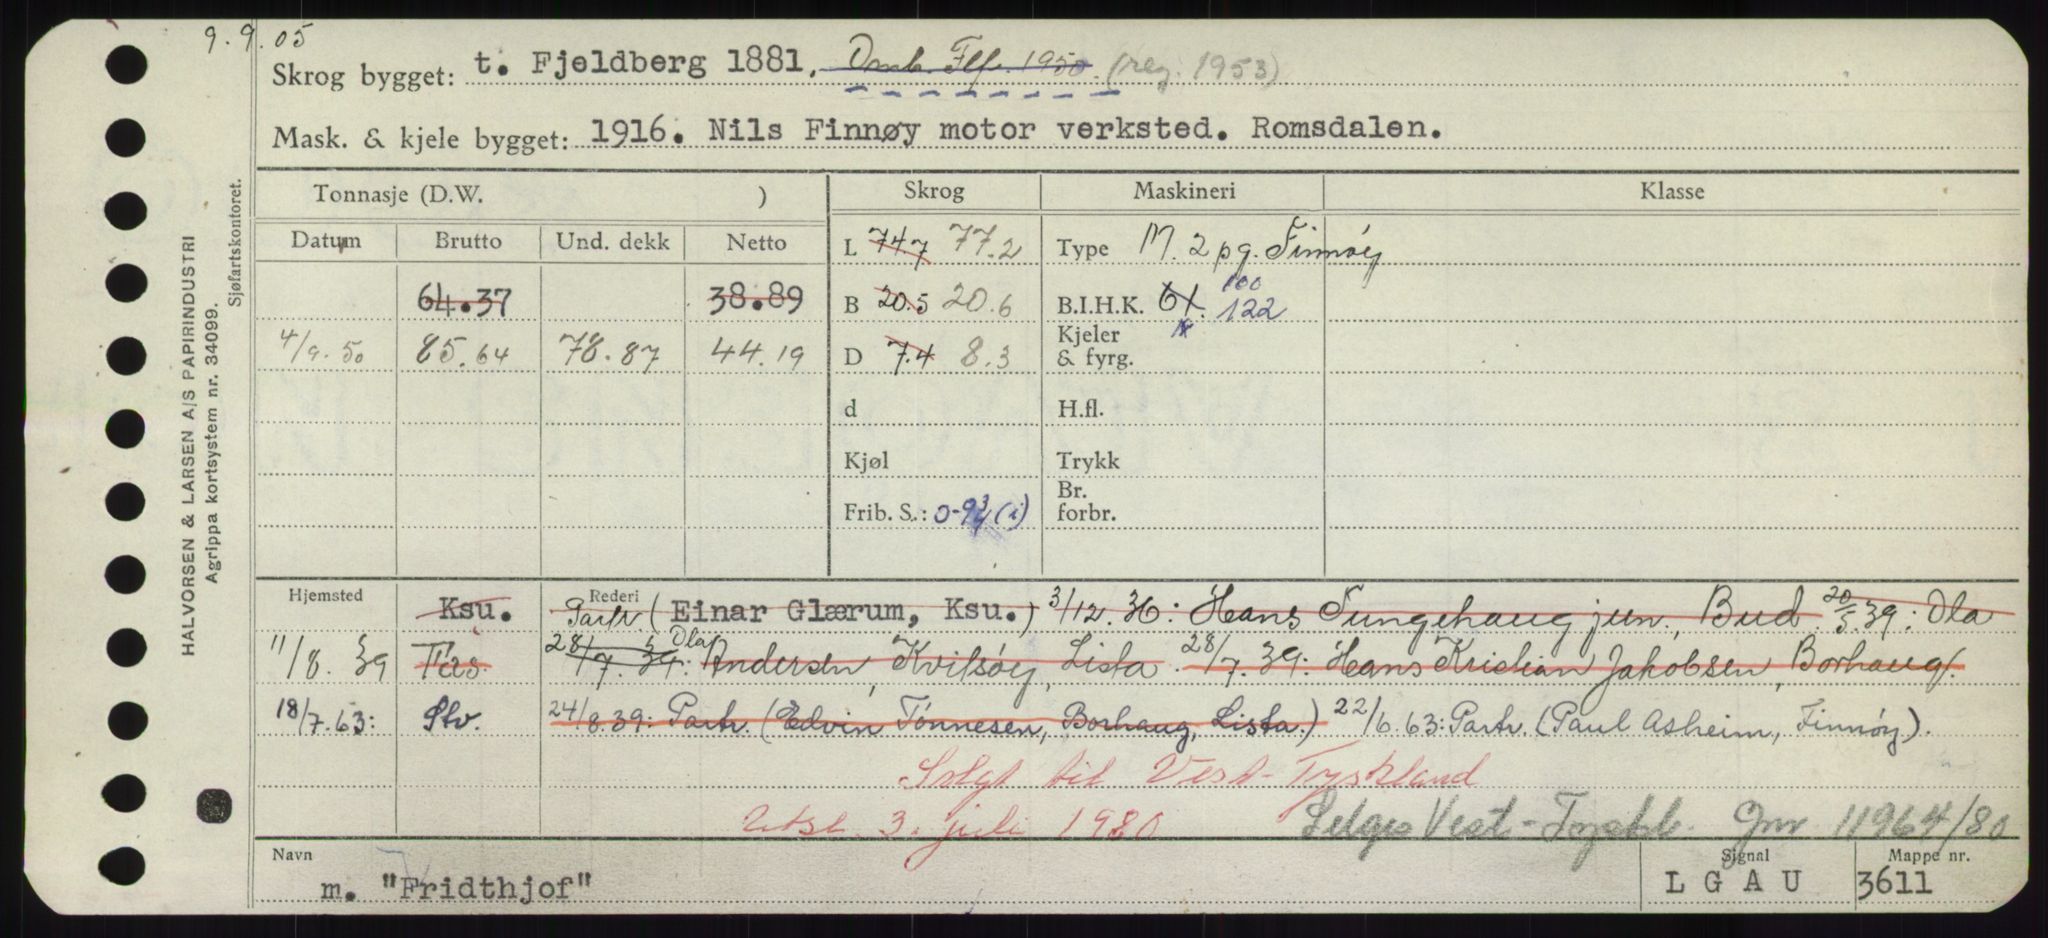 9.9.05
Skrog bygget: t. Fjeldberg 1881. Omb. Flf. 1950. (reg. 1953)
Mask. & kjele bygget: 1916. Nils Finnøy motor verksted. Romsdalen.
HALVORSEN & LARSEN A/S PAPIRINDUSTRI
Agrippa kortsystem nr. 34099.
Sjøfartskontoret.
Tonnasje (D.W. ) Skrog Maskineri Klasse
Datum Brutto Und. dekk Netto L 74.7 77.2 Type M. 2 pg. Finnøy
100
64.37 38.89 B 20.5 20.6 B.I.H.K. 61. 122
4/9.50 85.64 78.87 44.19 D 7.4 8.3 Kjeler & fyrg.
d H.fl.
Kjøl Trykk
Frib. S.: (i) Br. forbr.
Hjemsted Rederi
Ksu. Partr. (Einar Glærum, Ksu.) 3/12.36: Hans Tungehaug jun., Bud. 20/5.39: Ola
11/8.39 Fas. 28/7.39: Ola Andersen, Kvilsøy, Lista. 28/7.39: Hans Kristian Jakobsen, Borhaug.
18/7.63: Stv. 24/8.39: Partr. (Edvin Tønnesen, Borhaug, Lista.) 22/6.63: Partr. (Paul Asheim, Finnøy).
Solgt til Vest-Tyskland
Utsl. 3. juli 1980 Selges Vest-Tyskl. Jnr 11964/80
Navn Signal Mappe nr.
m. "Fridthjof" L G A U 3611